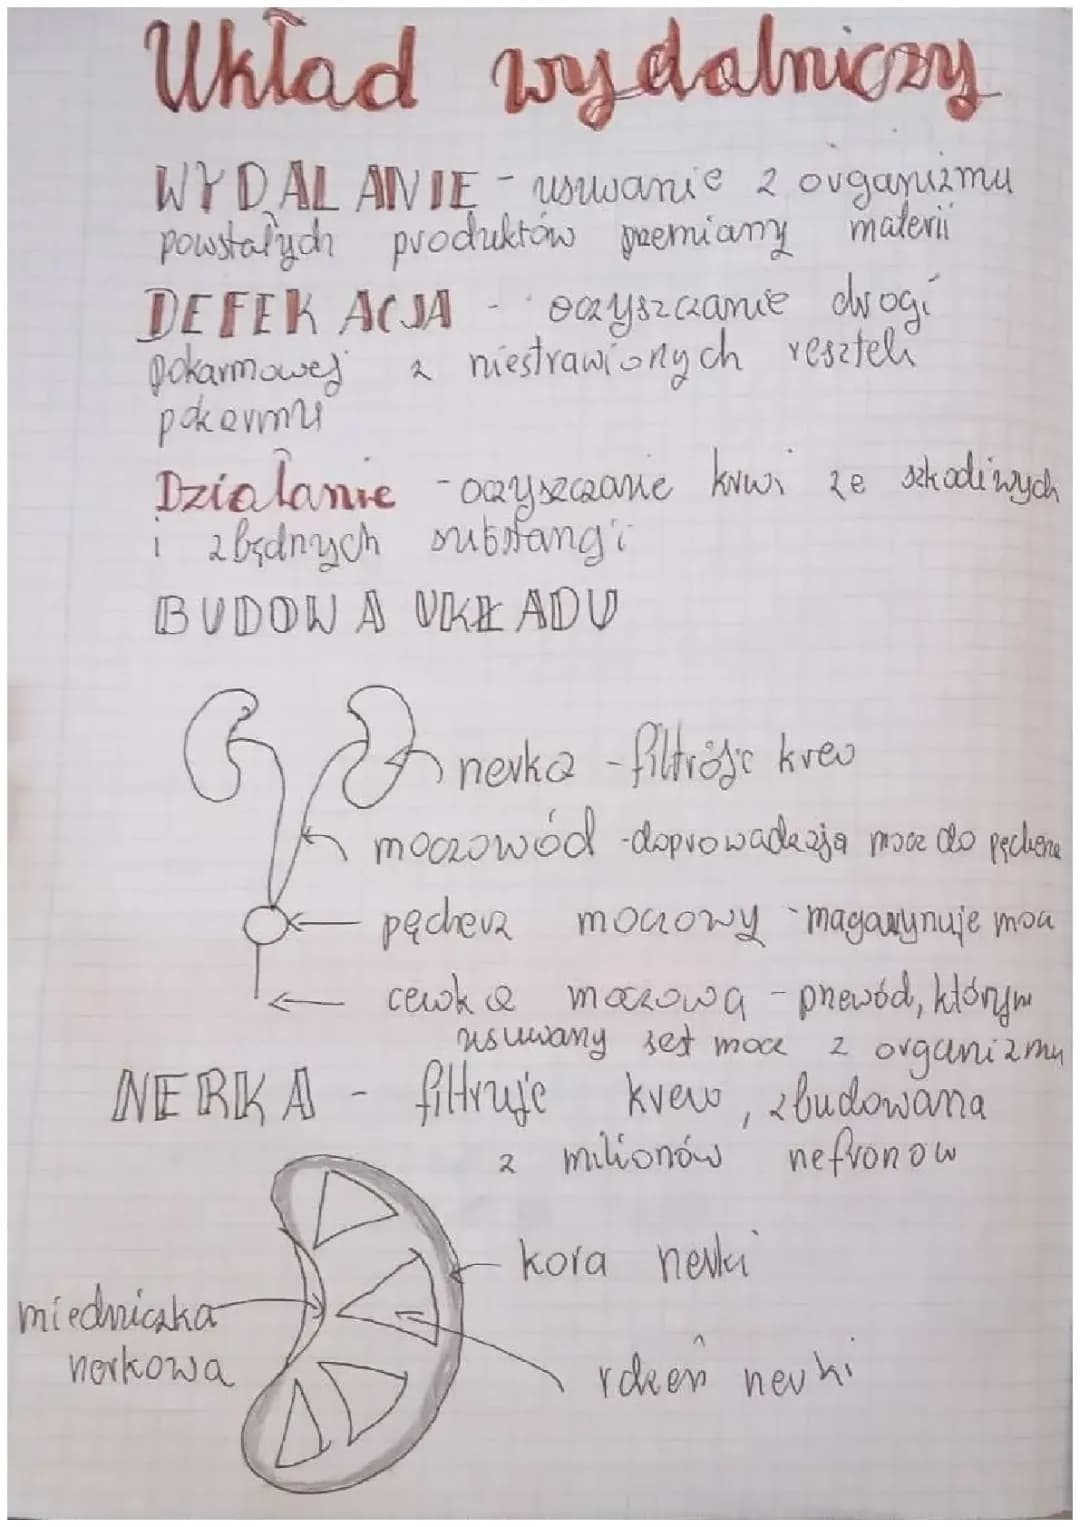 Układ wydalniczy
WYDALANIE - usuwanie z organizmu
powstałych produktów przemiany materii
DEFEKACJA - oczyszczanie drogi
pokarmowej z niestrawionych resztek
pokarmu
Działanie - oczyszczanie krwi ze szkodliwych
i zbędnych substancji
BUDOWA UKŁADU
nerka - filtruje krew
moczowód - doprowadzają mocz do pęcherza
pęcherz moczowy - magazynuje mocz
cewka moczowa - przewód, którym
usuwany jest mocz z organizmu
NERKA - filtruje krew, zbudowana
z milionów nefronow
kora nerki
miedniczka
nerkowa
rdzeń nerki